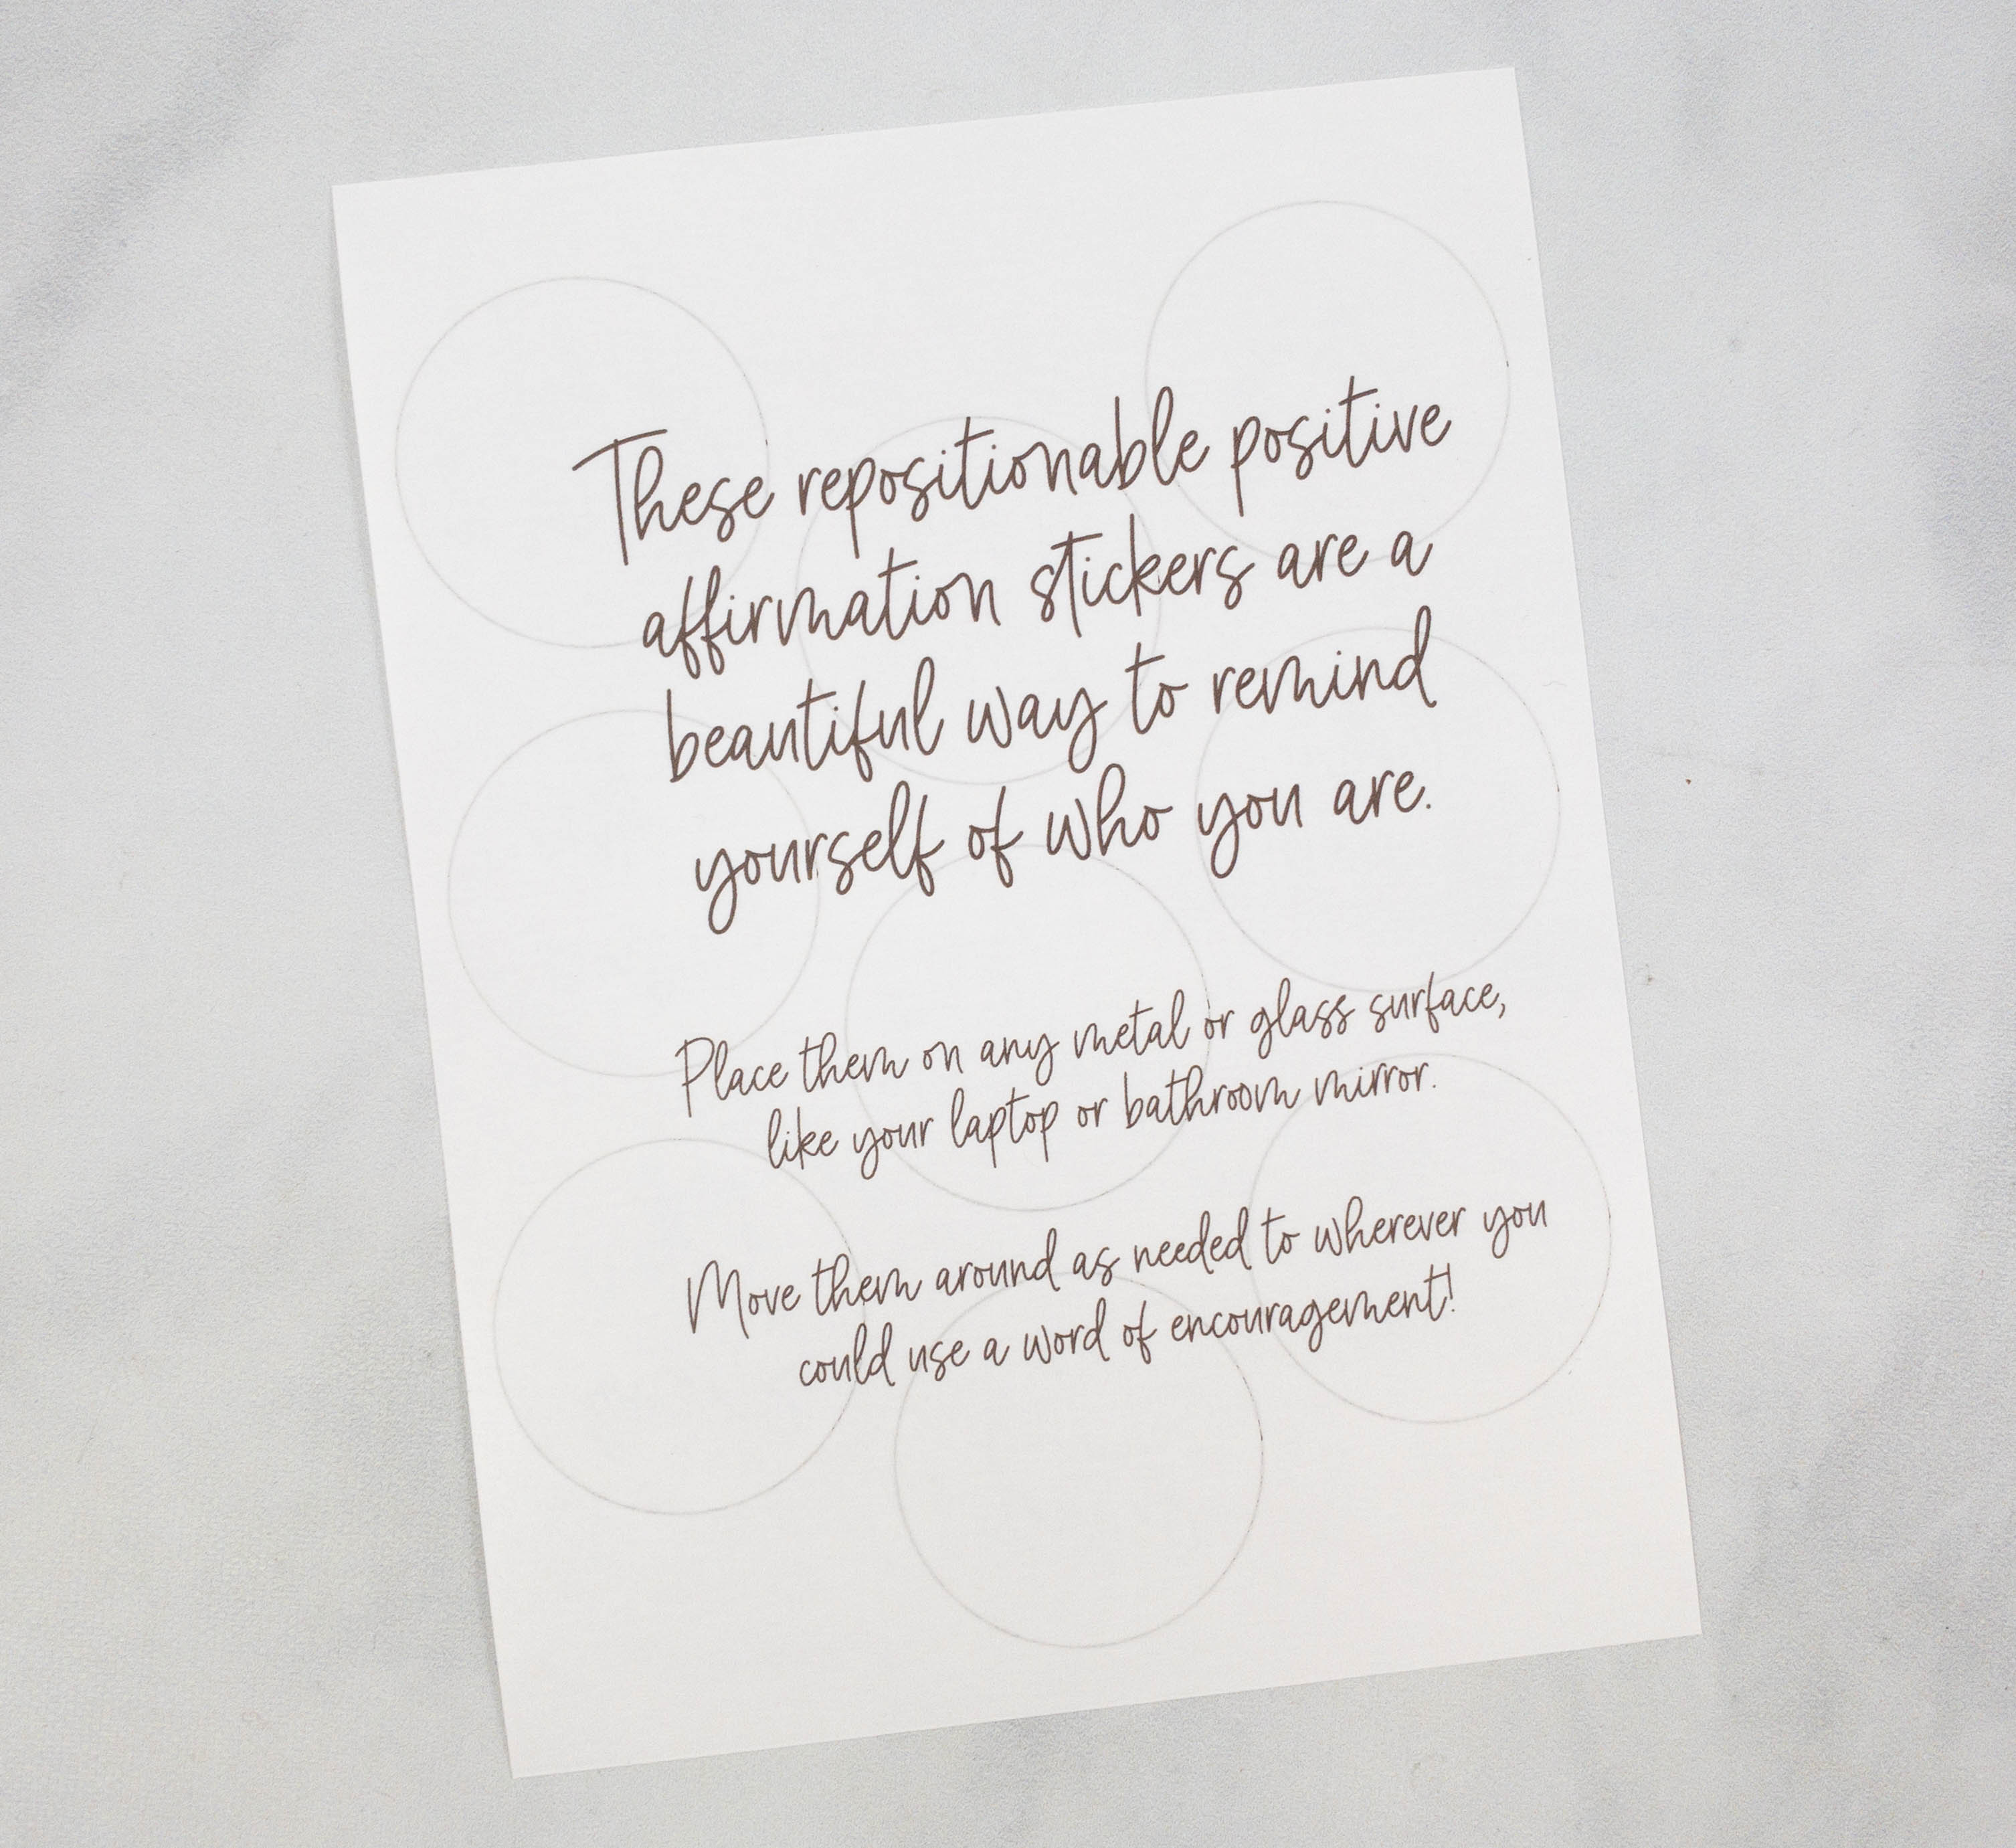 These repositionable positive
affirmation stickers are a
beautiful way to remind
yourself of who you are.
Place them on any metal or glass surface,
like your laptop or bathroom mirror.
Move them around as needed to wherever you
could use a word of encouragement!